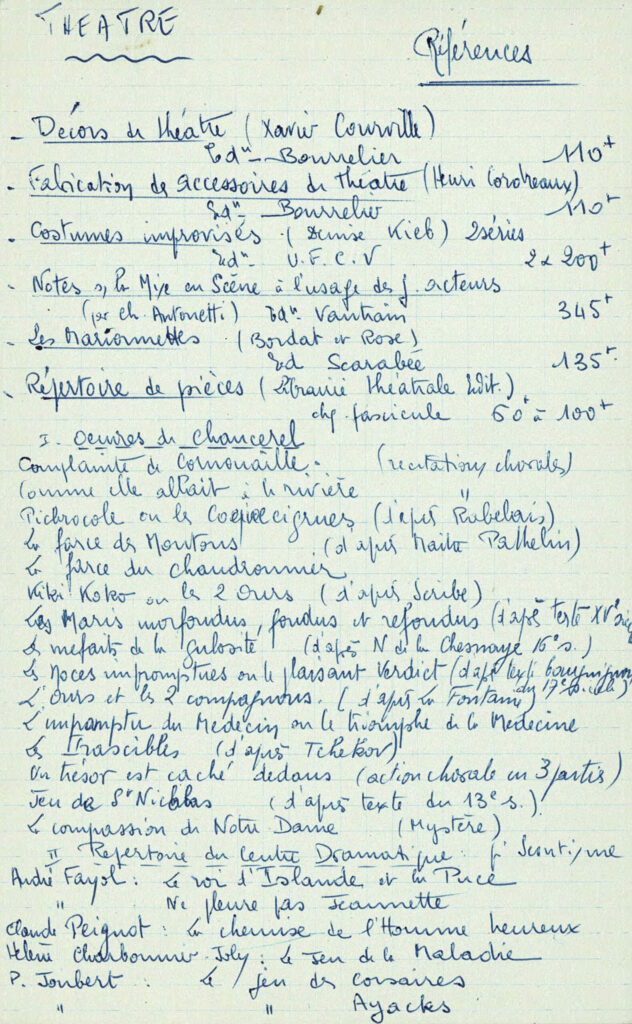 THEATRE
Références
- Décors de théâtre (Xavier Courville)
Edn - Bourrelier 110+
- Fabrication de accessoires de théâtre (Henri Cordreaux)
Edn - Bourrelier 110+
- Costumes improvisés. (Denise Kieb) 2 séries
Edn - U.F.C.V 2 x 200+
- Notes s, la Mise en Scène à l'usage des j. acteurs
(par Ch. Antonetti) Edn. Vautrain 345+
- Les Marionnettes (Bordat et Rose)
Ed Scarabée 135+
- Répertoire de pièces (Librairie théâtrale Edit.)
chq. fascicule 60+ à 100+
I. Oeuvres de Chancerel
Complainte de Cornouaille. (recitations chorales)
Comme elle allait à la rivière "
Pichrocole ou les Coquecigrues (d'après Rabelais)
La farce des Moutons (d'après Maitre Pathelin)
La farce du chaudronnier
Kiki Koko ou les 2 Ours (d'après Scribe)
Les Maris morfondus, fondus et refondus (d'après texte XVe
Les mefaits de la gulosité (d'après N de la Chesnaye 16e s.)
Les Noces impromptues ou le plaisant Verdict (d'après texte bourguignon
du 17e siècle)
L'Ours et les 2 compagnons. (d'après La Fontaine)
L'impromptu du Médecin ou le triomphe de la Medecine
Les Irascibles (d'après Tchekov)
Un trésor est caché dedans (action chorale en 3 parties)
Jeu de St Nicolas (d'après texte du 13e s.)
La compassion de Notre Dame (Mystère)
II Répertoire du Centre Dramatique: Scoutisme
André Fayol: Le roi d'Islande et la Puce
" Ne pleure pas Jeannette
Claude Peignot: La chemise de l'Homme heureux
Hélène Charbonnier-Joly: Le Jeu de la Maladie
P. Joubert: Le jeu des corsaires
" " Ayacks